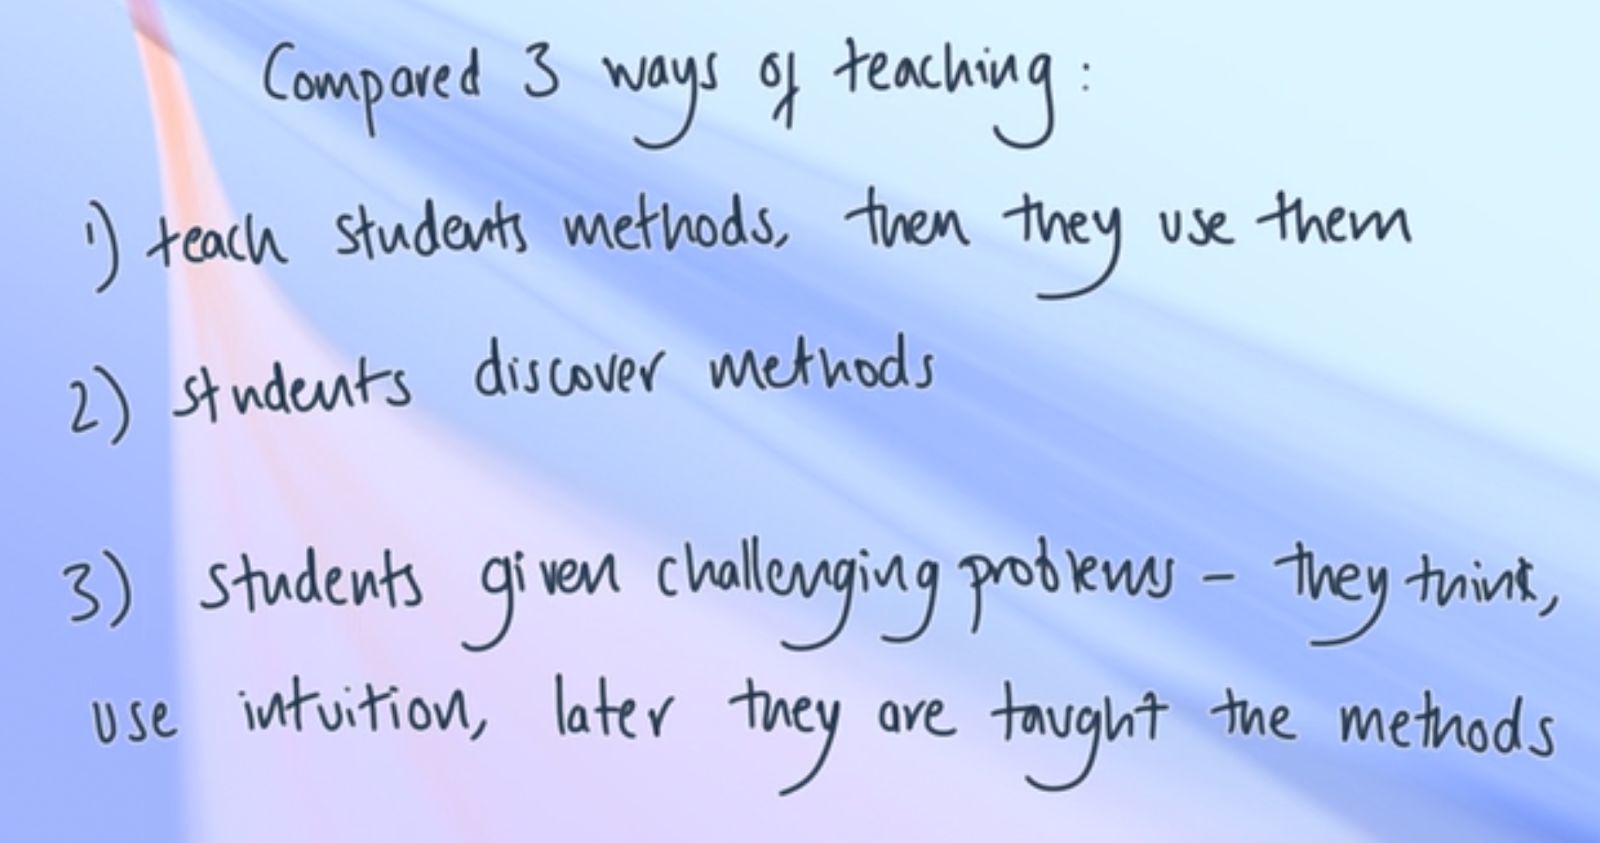 Compared 3 ways of teaching:
1) teach students methods, then they use them
2) students discover methods
3) students given challenging problems - they think,
use intuition, later they are taught the methods